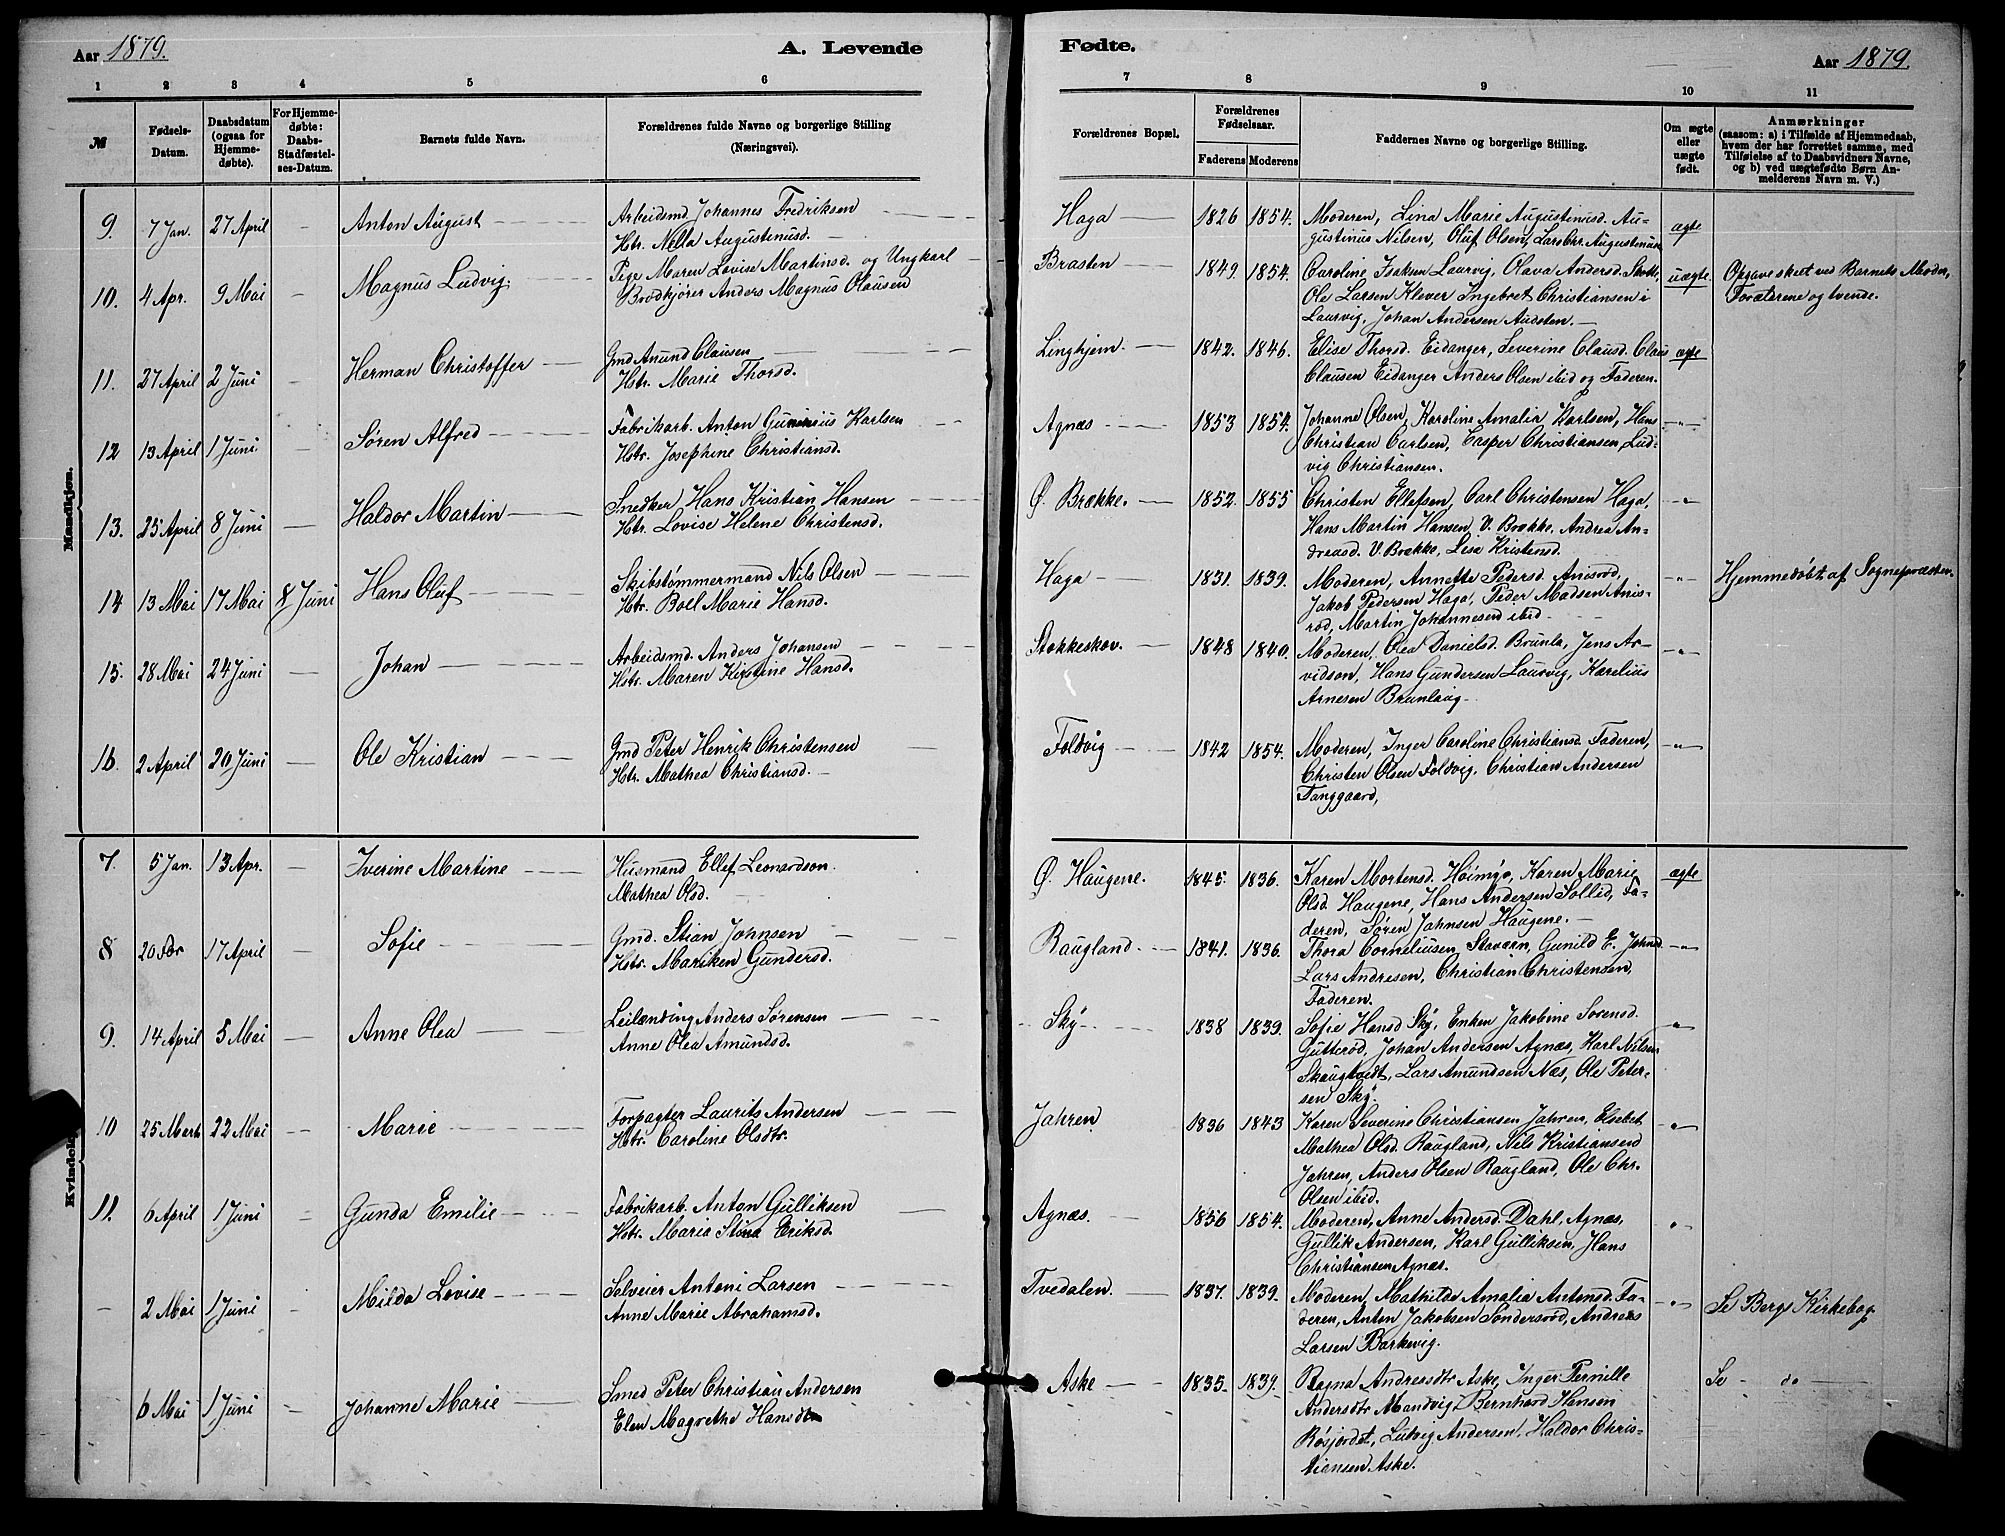 Aar 1879. A. Levende
1 2 3 4 5 6
№
Fødsels-
Datum.
Daabsdatum
(ogsaa for
Hjemme-
døbte).
For Hjemme-
døbte:
Daabs-
Stadfæstel-
ses-Datum.
Barnets fulde Navn.
Forældrenes fulde Navne og borgerlige Stilling
(Næringsvei).
Mandkjøn.
9. 7 Jan. 27 April - Anton August
Arbeidsmd Johannes Fredriksen
Hstr. Nella Augustinusd.
10. 4 Apr. 9 Mai - Magnus Ludvig.
Pige Maren Lovise Martinsd. og Ungkarl
Brødkjører Anders Magnus Olausen
11. 27 April 2 Juni - Herman Christoffer
Gmd Anund Clausen
Hstr. Marie Thorsd.
12 13 April 1 Juni - Søren Alfred
Fabrikarb. Anton Gunerius Karlsen
Hstr. Josephine Christiansd.
13. 25 April 8 Juni - Haldor Martin
Snedker Hans Kristian Hansen
Hstr. Lovise Helene Christensd.
14 13 Mai 17 Mai 8 Juni Hans Oluf
Skibstømmermand Nils Olsen
Hstr. Boel Marie Hansd.
15. 28 Mai 24 Juni - Johan
Arbeidsmd. Anders Johansen
Hstr. Maren Kirstine Hansd.
16. 2 April 20 Juni - Ole Kristian
Gmd Peter Henrik Christensen
Hstr. Mathea Christiansd.
Kvindekjøn
7. 5 Jan. 13 Apr. - Iverine Martine
Husmand Ellef Leonardson
Mathea Olsd.
8 20 Febr 17 April - Sofie
Gmd. Stian Johnsen
Hstr. Mariken Gundersd.
9. 14 April 5 Mai - Anne Olea
Leilænding Anders Sørensen
Anne Olea Amundsd.
10 25 Marts 22 Mai - Marie
Forpagter Laurits Andersen
Hstr. Caroline Olsdtr.
11. 6 April 1 Juni - Gunda Emilie
Fabrikarb. Anton Gulliksen
Hstr. Maria Stina Eriksd.
- 2 Mai 1 Juni - Milda Lovise
Selveier Antoni Larsen
Anne Marie Abrahamsd.
6 Mai 1 Juni - Johanne Marie
Smed Peter Christian Andersen
Elen Magrethe Hansdtr
Fødte. Aar 1879.
7 8 9 10 11
Forældrenes Bopæl.
Forældrenes
Fødselsaar.
Faderens Moderens
Faddernes Navne og borgerlige Stilling.
Om ægte
eller
uægte
født.
Anmærkninger
(saasom: a) i Tilfælde af Hjemmedaab,
hvem der har forrettet samme, med
Tilføielse af to Daabsvidners Navne,
og b) ved uægtefødte Børn An-
melderens Navn m. V.)
Haga 1826 1854. Moderen, Lina Marie Augustinusd. Au- ægte
gustinus Nilsen, Oluf Olsen, Augustinus
Brasten 1849. 1854. Caroline Isaksen Laurvig, Olava Andersd. uægte. Opgave skeet ved Barnets Moder,
Ole Larsen Klever Ingebret Christiansen i Forældrene og tvende.
Laurvig, Johan Andersen Audsten.
Linghjem. 1842. 1846. Elise Thorsd. Eidanger, Severine Clausd. Claus ægte
Clausen Eidanger Anders Olsen ibid og Faderen.
Agnæs 1853 1854. Johanne Olsen, Karoline Amalia Karlsen, Hans - " -
Christian Carlsen, Casper Christiansen, Lud-
vig Christiansen.
Ø. Brække. 1852. 1855 Christen Ellefsen, Carl Christensen Haga, - " -
Hans Martin Hansen, V. Brække. Andrea An-
dreasd. V. Brække, Lisa Kristensd.
Haga 1831. 1839. Moderen, Annette Pedersd. Anisrød, - " - Hjemmedøbt af Sognepræsten.
Jakob Pedersen Haga, Peder Madsen Anis-
rød, Martin Johannesen ibid
Stokkeskov. 1848 1840. Moderen, Olea Danielsd. Brunla, Jens Ar- - " -
vidson, Hans Gundersen Laurvig, Karelius
Arnesen Brunlaug.
Foldvig 1842 1854. Moderen, Inger Caroline Christiansd. Faderen, - " -
Christen Olsen Foldvig, Christian Andersen
Tanggaard,
Ø. Haugene. 1845. 1836. Karen Mortensd. Høimyr, Karen Marie ægte
Olsd. Haugene, Hans Andersen Sollid, Fa-
deren, Søren Jahnsen Haugene.
Raugland. 1841. 1836. Thora Corneliusen, Stavern, Gunild E. Johnsd. - " -
Lars Andresen, Christian Christensen,
Faderen.
Sky 1838 1839. Sofie Hansd Sky, Enken Jakobine Sørensd. "
Gutterød, Johan Andersen Agnæs, Karl Nilsen
Skaugtvedt, Lars Amundsen Næs, Ole Peter-
sen Sky.
Jahren 1836 1843 Karen Severine Christiansen Jahren, Elsebet - " -
Mathea Olsd. Raugland, Nils Kristiansen
Jahren, Anders Olsen Raugland, Ole Chr.
Olsen ibid.
Agnæs. 1856 1854. Moderen, Anne Andersd. Dahl, Agnæs, "
Gullik Andersen, Karl Gulliksen, Hans
Christiansen Agnæs.
Tvedalen. 1837. 1839. Moderen, Mathilde Amalia Antonsd. Fa- - " - Se Bergs Kirkebog
deren, Anton Jakobsen Søndersrød, Andreas
Larsen Barkevig.
Aske 1835. 1839. Ragna Andreasdtr Aske, Inger Pernille Se - do -
Andersdtr Mandvig, Bernhard Hansen
Røsjordet, Ludvig Andersen, Haldor Chris-
tiansen Aske.